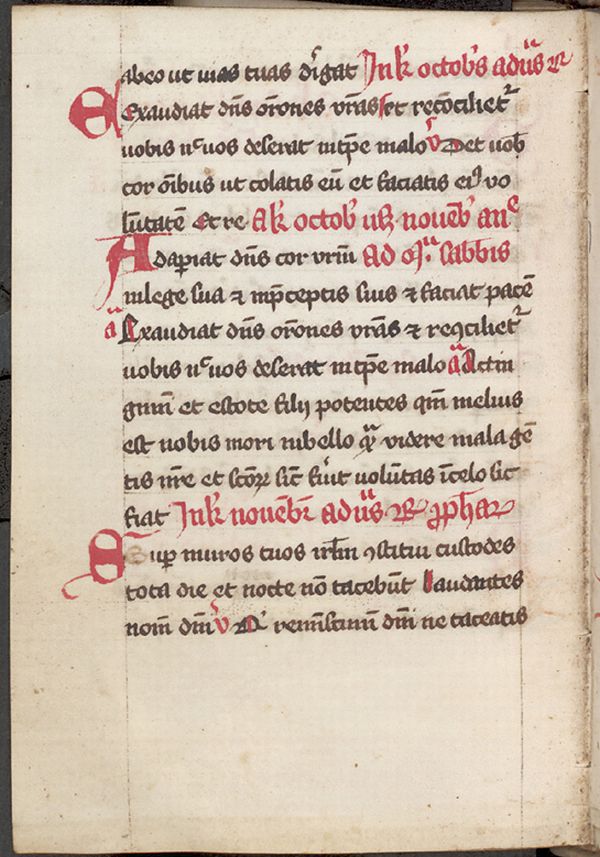 abeo ut uias tuas dir̉gat In kl' octob's ad uꝰ as R
Exaudiat dñs or̃ones vr̃as et recõciliet͛
uobis nec uos deserat in tp̃e malo V Det uob̃
cor om̃ibus ut colatis eũ et faciatis eiꝰ vo
lũtatẽ Et re A kl' octob' usꝫ nouẽb' anᵉ
Adap̃iat dñs cor vr̃m Ad mᵃ sabb̃is
in lege sua ⁊ in p̃ceptis suis ⁊ faciat pacẽ
a Exaudiat dñs or̃ones vr̃as ⁊ reꝯciliet͛
uobis nec uos deserat in tp̃e malo a Accin
gimĩ et estote filij potentes qm̃ melius
est nobis mori in bello qᵃ videre mala gẽ
tis nr̃e et sc̃orꝝ sic̃ fũit volũtas ĩ celo sic
fiat In kl' nouẽbr̃ ad uᵃs R ꝓph̃arꝝ
Sup̃ muros tuos irl̃m ꝯstitui custodes
tota die et nocte nõ tacebũt laudantes
nom̃ dñi V Qⁱ reminiscimĩ dñi ne taceatis